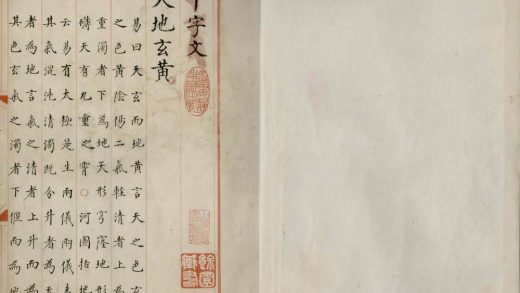 千字文
天地玄黃
易曰天玄而地黃言天之色玄
之色黃陰陽二氣輕清者上為
重濁者下為地天形穹窿地形
天有九重之霄○河圖括地
云易有太極是生兩儀兩儀未
其氣混沌清濁既分升者為天
者為地言氣之清者上升而為
其色玄氣之濁者下凝而為地
藏書